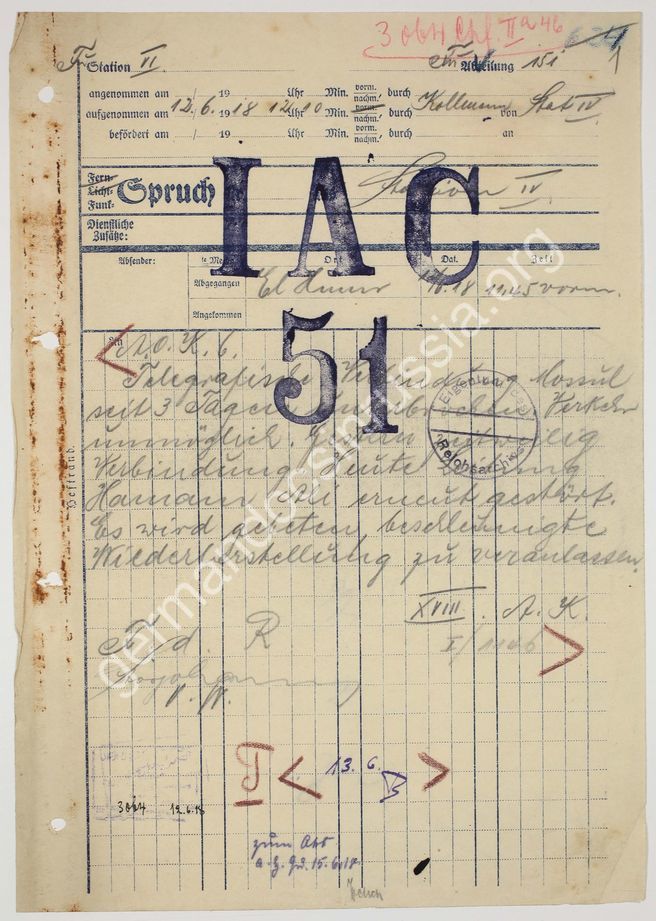 3 ob4 Chf. IIa 46
Station VI.
Fu Abteilung 151
1
angenommen am / 19 Uhr Min. vorm. nachm. durch
aufgenommen am 12./6. 1918 12 Uhr 10 Min. vorm. nachm. durch Kollmann von Stat IV
befördert am / 19 Uhr Min. vorm. nachm. durch an
Fern-
Licht-
Funk-
Spruch
Station IV
IAC
Dienstliche
Zusätze:
Absender:
Ort
Dat.
Zeit
Abgegangen
El
12/6.18
11.45 vorm.
Angekommen
51
An A.O.K. 6.
Telegrafische Verbindung Mossul
seit 3 Tagen unterbrochen. Verkehr
unmöglich. Gestern zeitweilig
Verbindung, heute
Hamam Ali erneut gestört.
Es wird gebeten beschleunigte
Wiederherstellung zu veranlassen.
Eigentum des
Reichsarchivs
Heftrand.
XVIII. A. K.
I/1146
F. d. R
13. 6.
3 ob4 12.6.18
zum Akt
15.6.18
germandocsinrussia.org